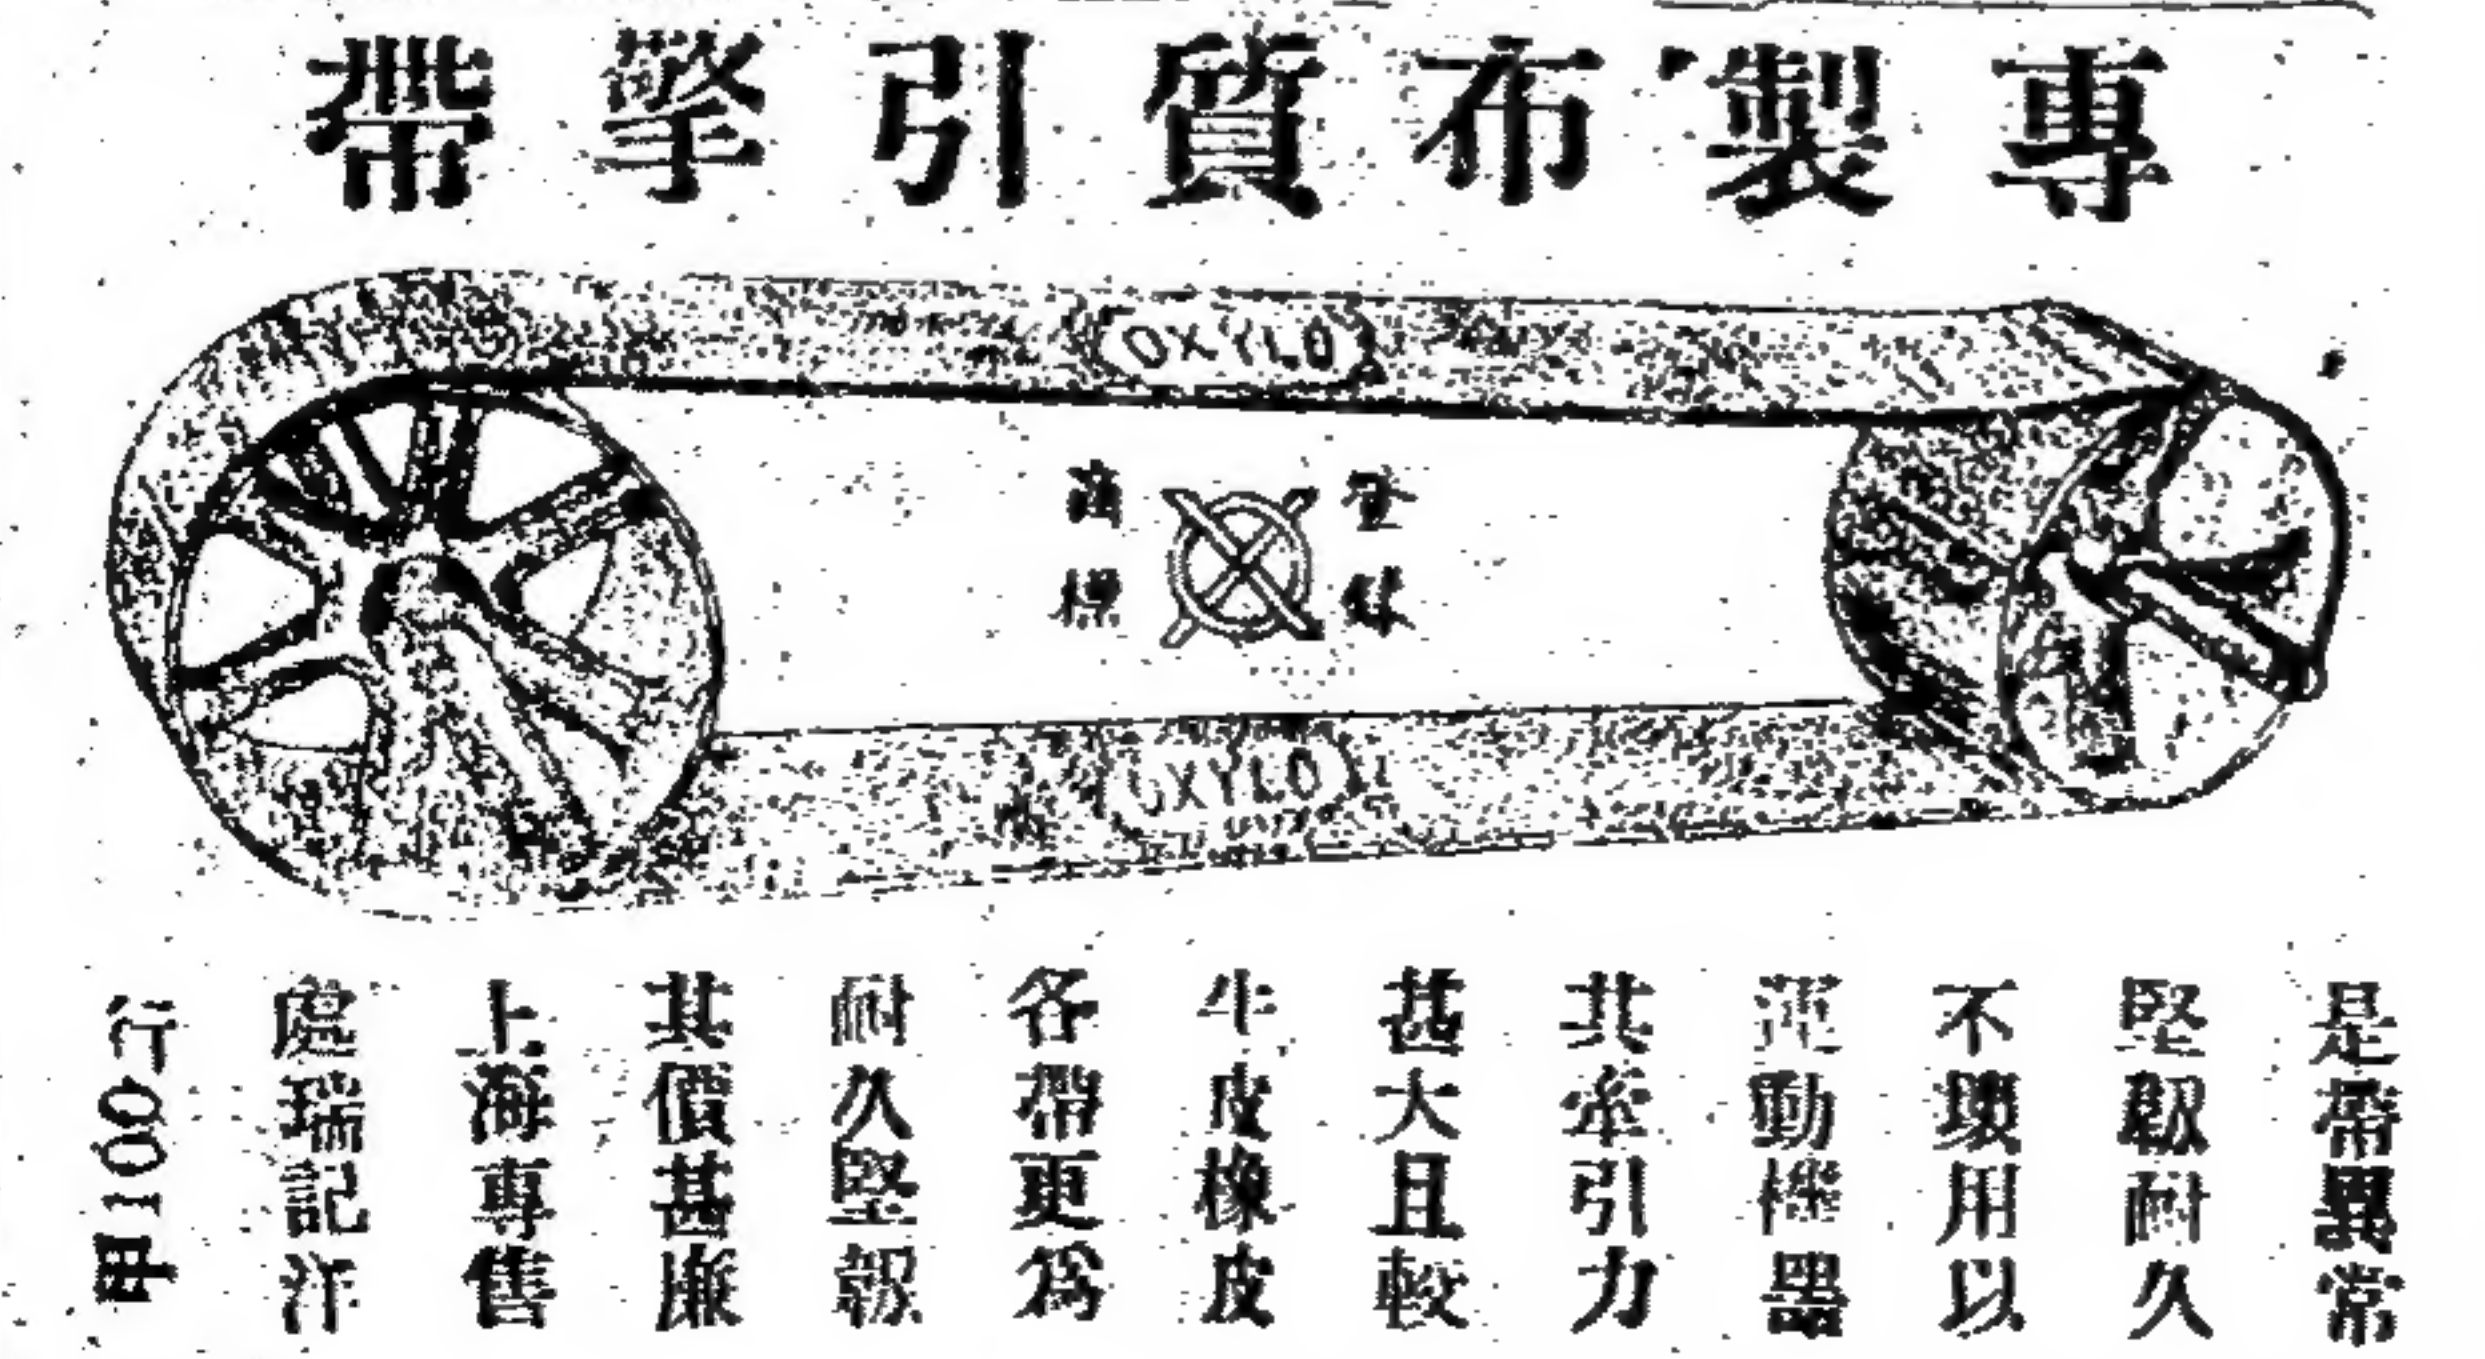 專製布質引擎帶
OXYLO
登錄
商標
OXYLO
是帶異常
堅韌耐久
不壞用以
運動機器
其牽引力
甚大且較
牛皮橡皮
各帶更為
耐久堅韌
其價甚廉
上海專售
處瑞記洋
行 甲1001